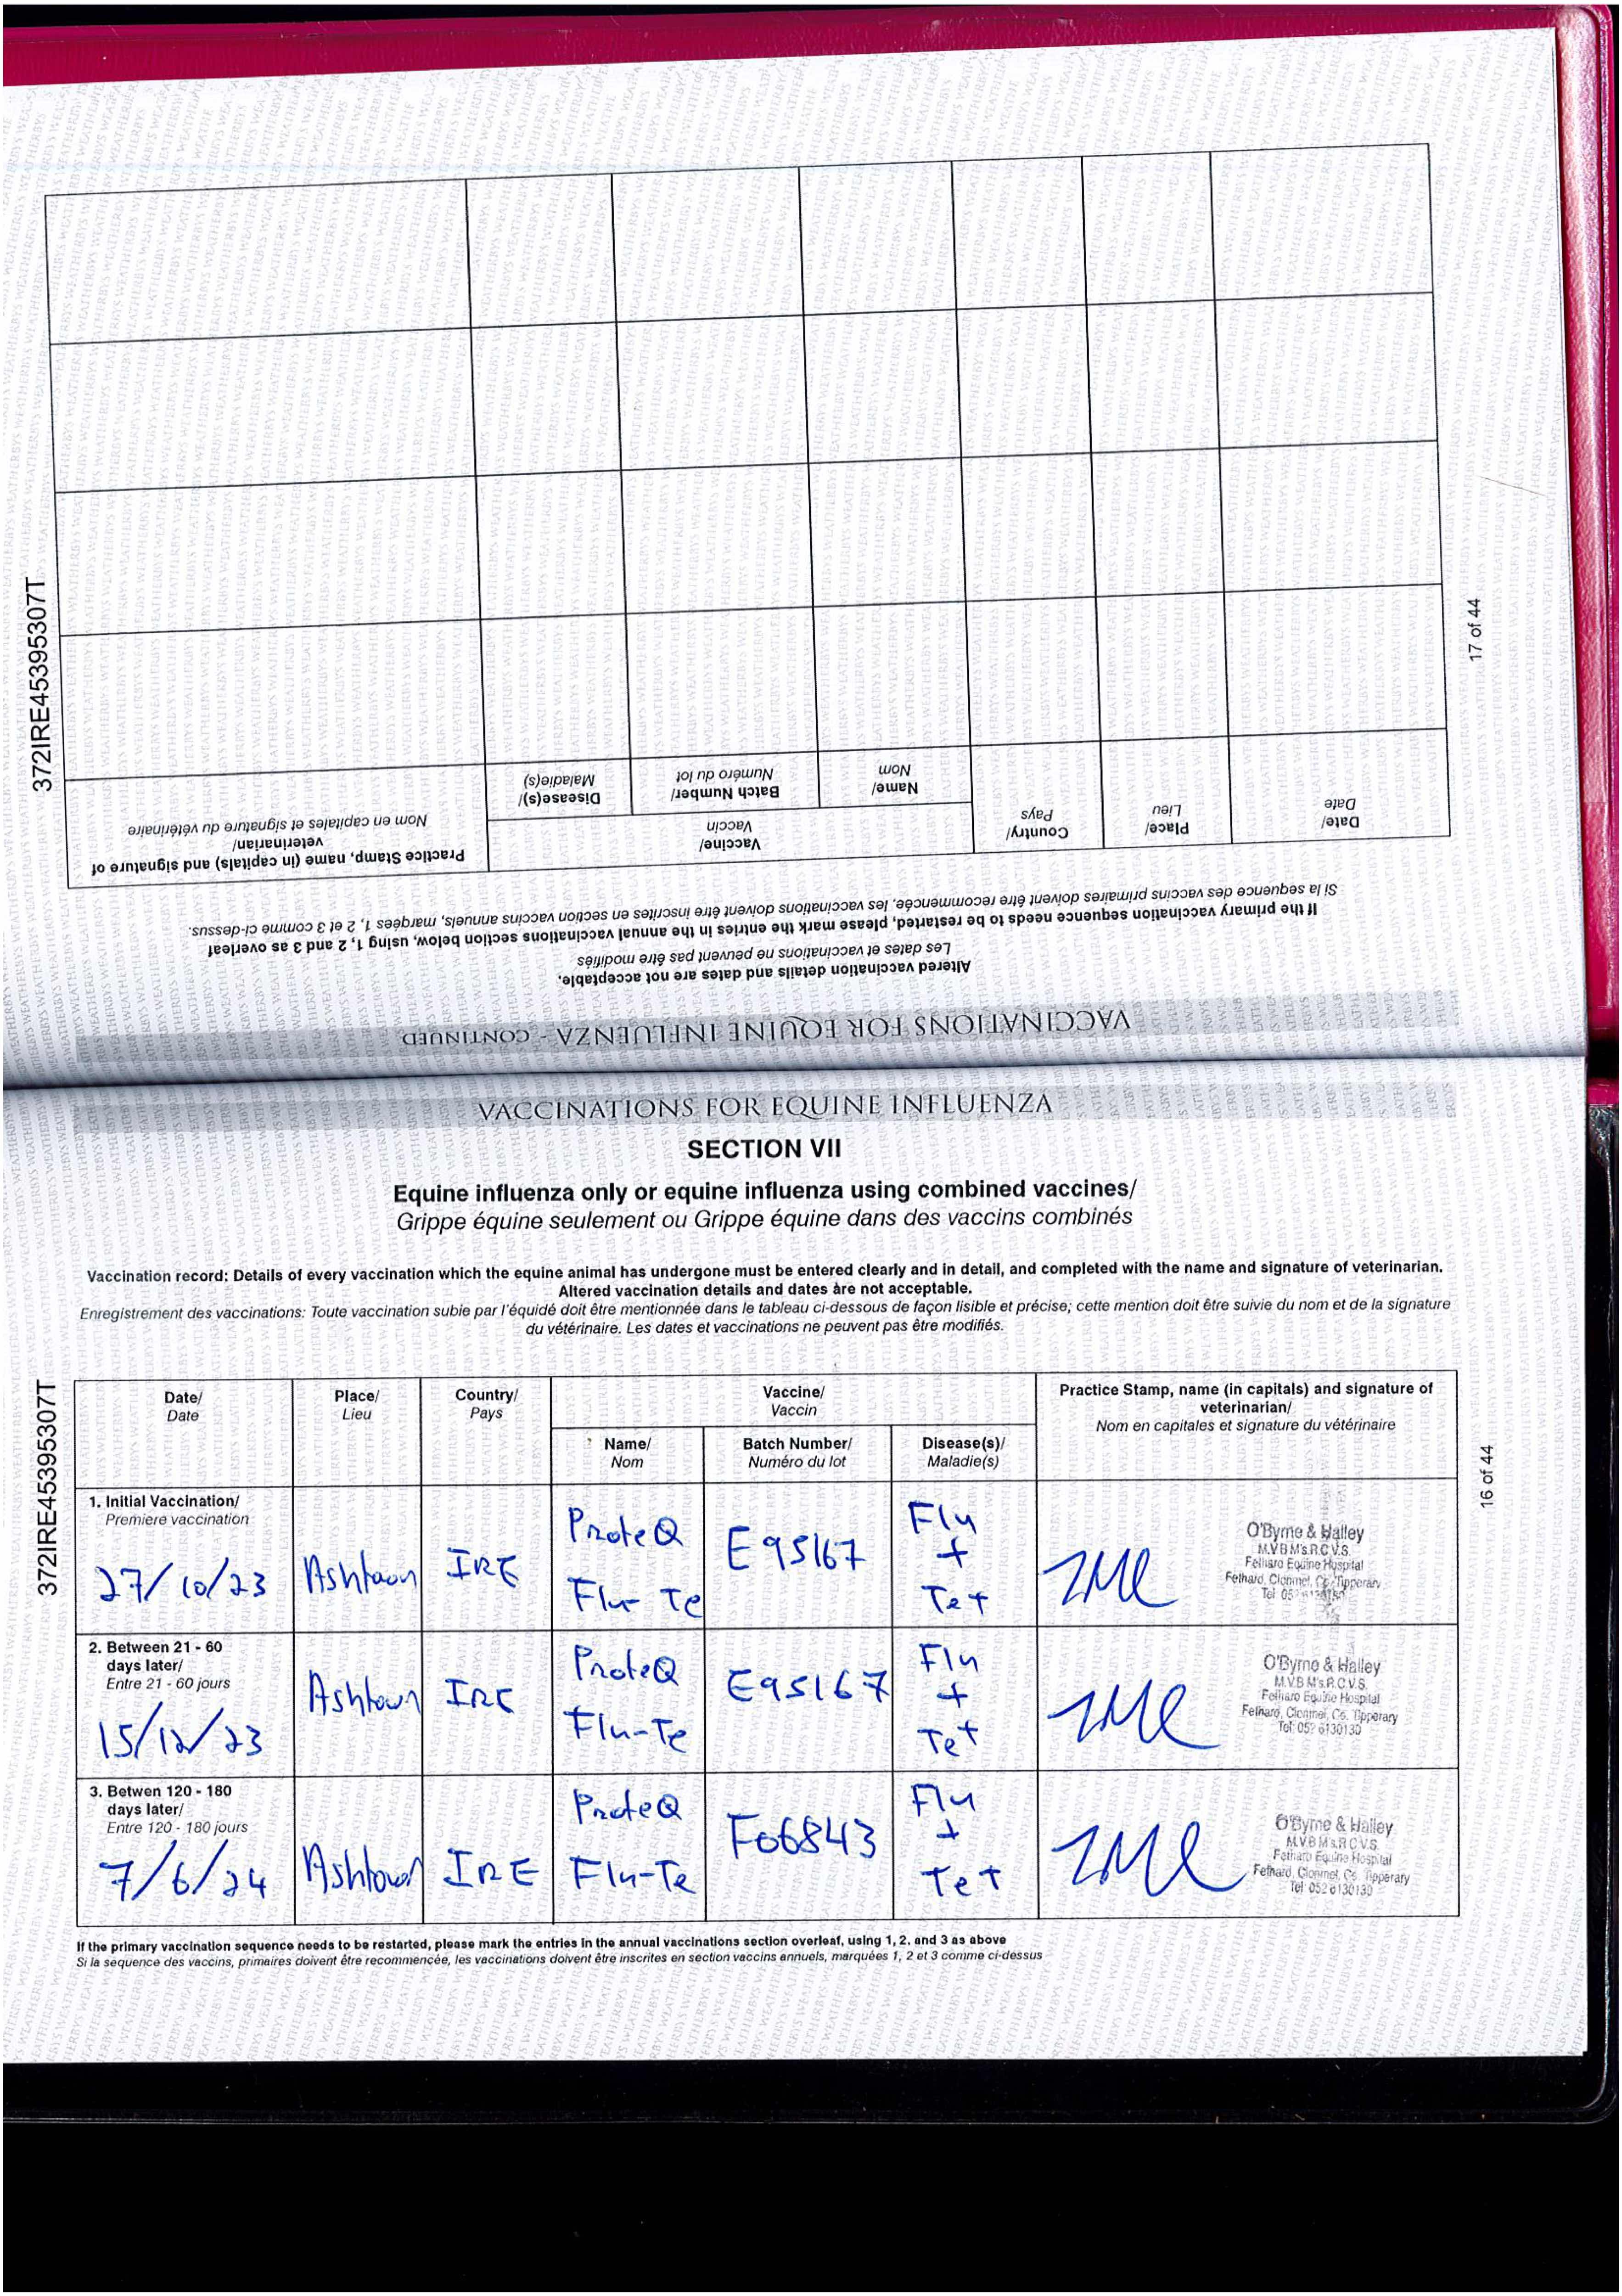 372IRE45395307T
17 of 44
VACCINATIONS FOR EQUINE INFLUENZA - CONTINUED
Altered vaccination details and dates are not acceptable.
Les dates et vaccinations ne peuvent pas être modifiés
If the primary vaccination sequence needs to be restarted, please mark the entries in the annual vaccinations section below, using 1, 2 and 3 as overleaf
Si la sequence des vaccins primaires doivent être recommencée, les vaccinations doivent être inscrites en section vaccins annuels, marquées 1, 2 et 3 comme ci-dessus.
Date/
Date
Place/
Lieu
Country/
Pays
Vaccine/
Vaccin
Name/
Nom
Batch Number/
Numéro du lot
Disease(s)/
Maladie(s)
Practice Stamp, name (in capitals) and signature of
veterinarian/
Nom en capitales et signature du vétérinaire
VACCINATIONS FOR EQUINE INFLUENZA
SECTION VII
Equine influenza only or equine influenza using combined vaccines/
Grippe équine seulement ou Grippe équine dans des vaccins combinés
Vaccination record: Details of every vaccination which the equine animal has undergone must be entered clearly and in detail, and completed with the name and signature of veterinarian.
Altered vaccination details and dates are not acceptable.
Enregistrement des vaccinations: Toute vaccination subie par l'équidé doit être mentionnée dans le tableau ci-dessous de façon lisible et précise; cette mention doit être suivie du nom et de la signature
du vétérinaire. Les dates et vaccinations ne peuvent pas être modifiés.
372IRE45395307T
16 of 44
Date/
Date
Place/
Lieu
Country/
Pays
Vaccine/
Vaccin
Name/
Nom
Batch Number/
Numéro du lot
Disease(s)/
Maladie(s)
Practice Stamp, name (in capitals) and signature of
veterinarian/
Nom en capitales et signature du vétérinaire
1. Initial Vaccination/
Premiere vaccination
27/10/23
Ashtown
IRE
ProteQ
Flu-Te
E95167
Flu
+
Tet
O'Byrne & Halley
M.V.B M's.R.C.V.S.
Fethard Equine Hospital
Fethard, Clonmel, Co. Tipperary
2. Between 21 - 60
days later/
Entre 21 - 60 jours
15/12/23
Ashtown
IRE
ProteQ
Flu-Te
E95167
Flu
+
Tet
O'Byrne & Halley
M.V.B M's.R.C.V.S.
Fethard Equine Hospital
Fethard, Clonmel, Co. Tipperary
Tel: 052 6130130
3. Betwen 120 - 180
days later/
Entre 120 - 180 jours
7/6/24
Ashtown
IRE
ProteQ
Flu-Te
F06843
Flu
+
Tet
O'Byrne & Halley
M.V.B M's.R.C.V.S.
Fethard Equine Hospital
Fethard, Clonmel, Co. Tipperary
Tel: 052 6130130
If the primary vaccination sequence needs to be restarted, please mark the entries in the annual vaccinations section overleaf, using 1, 2, and 3 as above
Si la sequence des vaccins, primaires doivent être recommencée, les vaccinations doivent être inscrites en section vaccins annuels, marquées 1, 2 et 3 comme ci-dessus